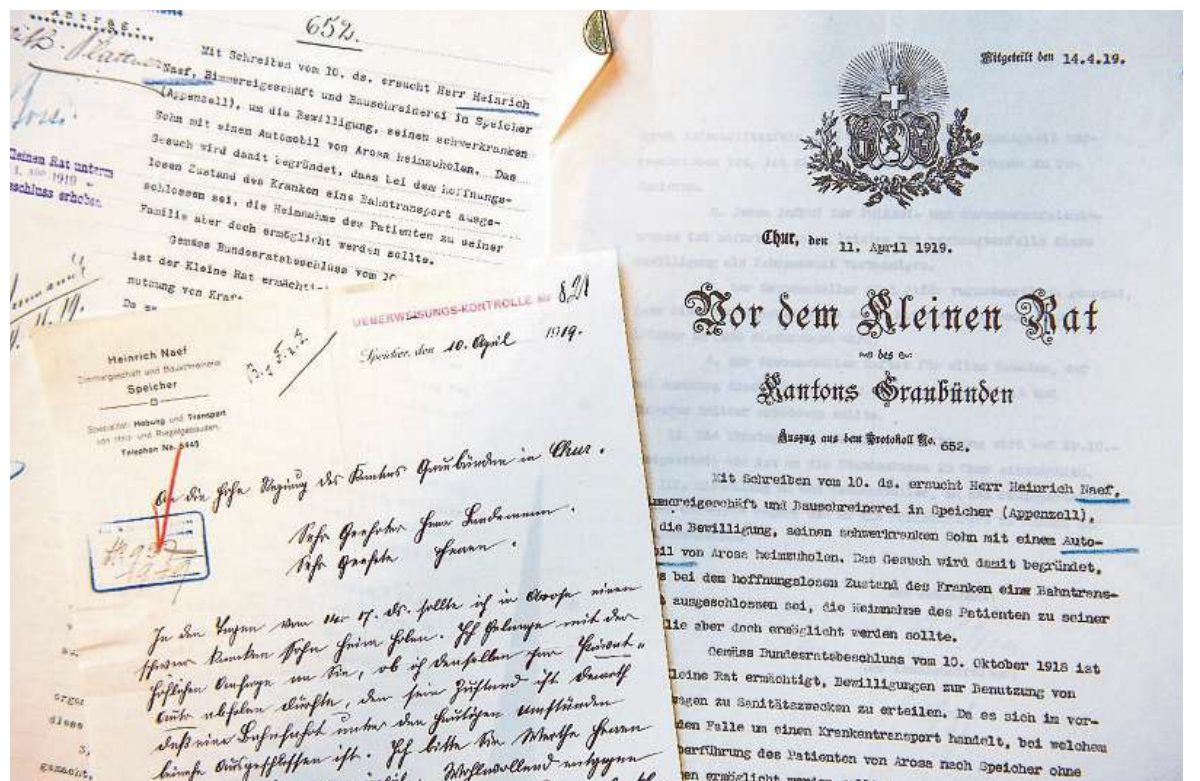 Antrag.
652.
Mit Schreiben vom 10. ds. ersucht Herr Heinrich
Naef, Zimmereigeschäft und Bauschreinerei in Speicher
(Appenzell), um die Bewilligung, seinen schwerkranken
Sohn mit einen Automobil von Arosa heimzuholen. Das
Gesuch wird damit begründet, dass bei dem hoffnungs-
losen Zustand des Kranken eine Bahntransport ausge-
schlossen sei, die Heimnahme des Patienten zu seiner
Familie aber doch ermöglicht werden sollte.
Gemäss Bundesratsbeschluss vom
ist der Kleine Rat ermächti
nutzung von Kraf
leinen Rat unterm
1919
eschluss erhoben
UEBERWEISUNGS-KONTROLLE No 821
Speicher, den 10. April 1919.
Heinrich Naef
Zimmergeschäft und Bauschreinerei
Speicher
Spezialität: Hebung und Transport
von Holz- und Riegelgebäuden.
Telephon No. 5445
An die hohe Regierung des Kantons Graubünden in Chur.
Sehr Geehrter Herr Landammann.
Sehr Geehrte Herren.
In den Tagen vom 14. 17. ds. sollte ich in Arosa einen
schwer kranken Sohn heim holen. Ich gelange mit der
höflichen Anfrage an Sie, ob ich denselben per Privat-
auto abholen dürfte, den sein Zustand ist derart
daß eine Bahnfahrt unter den heutigen Umständen
beinahe ausgeschlossen ist. Ich bitte Sie Werthe Herren
Wohlwollend entgegen
orga
diese
gemacht,
Mitgeteilt den 14.4.19.
Chur, den 11. April 1919.
Vor dem Kleinen Rat
des
Kantons Graubünden
Auszug aus dem Protokoll No. 652.
Mit Schreiben vom 10. ds. ersucht Herr Heinrich Naef,
mmereigeschäft und Bauschreinerei in Speicher (Appenzell),
die Bewilligung, seinen schwerkranken Sohn mit einem Auto-
bil von Arosa heimzuholen. Das Gesuch wird damit begründet,
s bei dem hoffnungslosen Zustand des Franken eine Bahntrans-
t ausgeschlossen sei, die Heimnahme des Patienten zu seiner
lie aber doch ermöglicht werden sollte.
Gemäss Bundesratsbeschluss vom 10. Oktober 1918 ist
leine Rat ermächtigt, Bewilligungen zur Benutzung von
wagen zu Sanitätszwecken zu erteilen. Da es sich im vor-
den Falle um einen Krankentransport handelt, bei welchem
berführung des Patienten von Arosa nach Speicher ohne
en ermöglicht werden